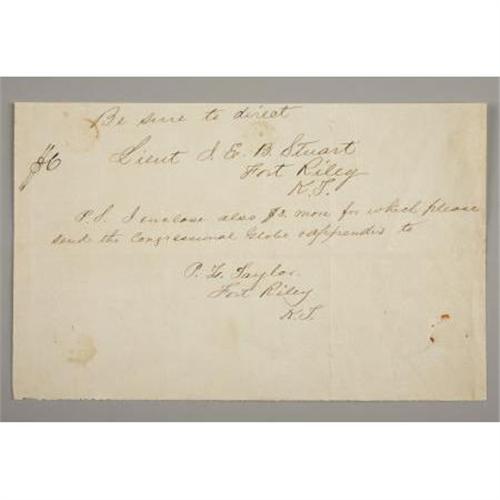 Be sure to direct
$6
Lieut J. E. B. Stuart
Fort Riley
K.T.
P.S. I enclose also $3. more for which please
send the Congressional Globe & appendix to
P. Taylor
Fort Riley
K.T.